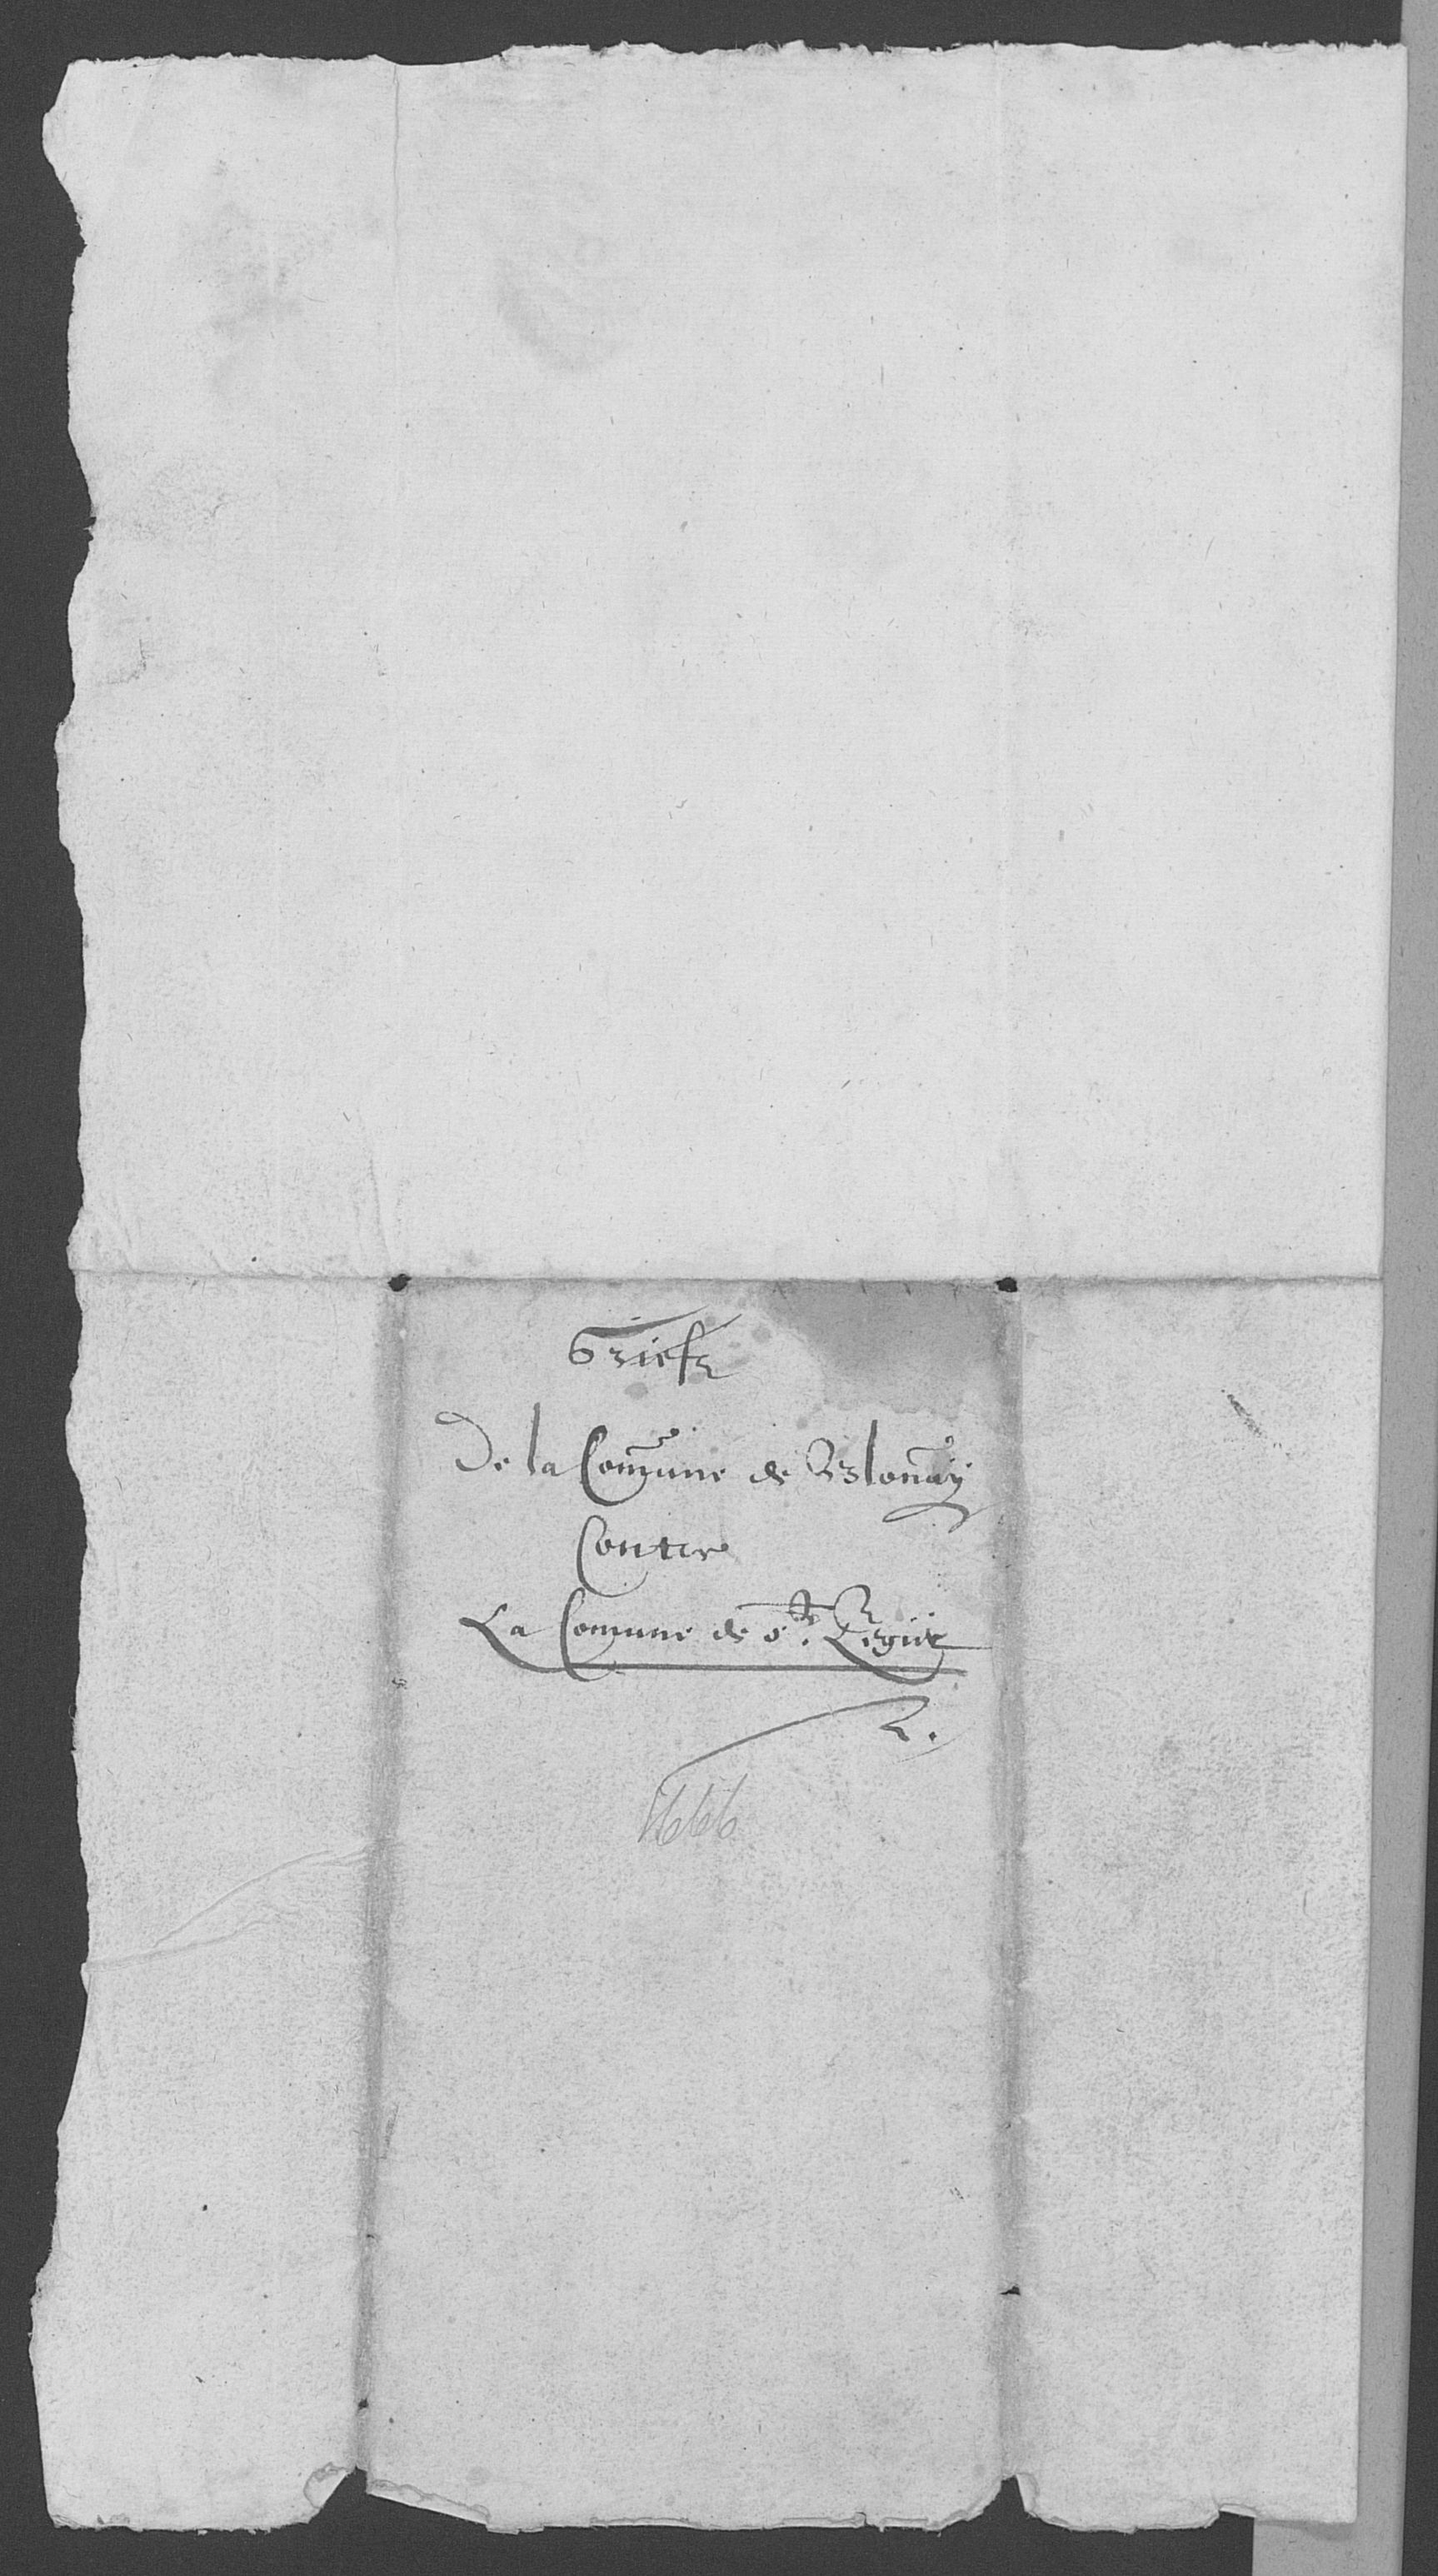 Griefz
De la Comune de Blonay
Contre
La Comune de st. Legier
2.
1666